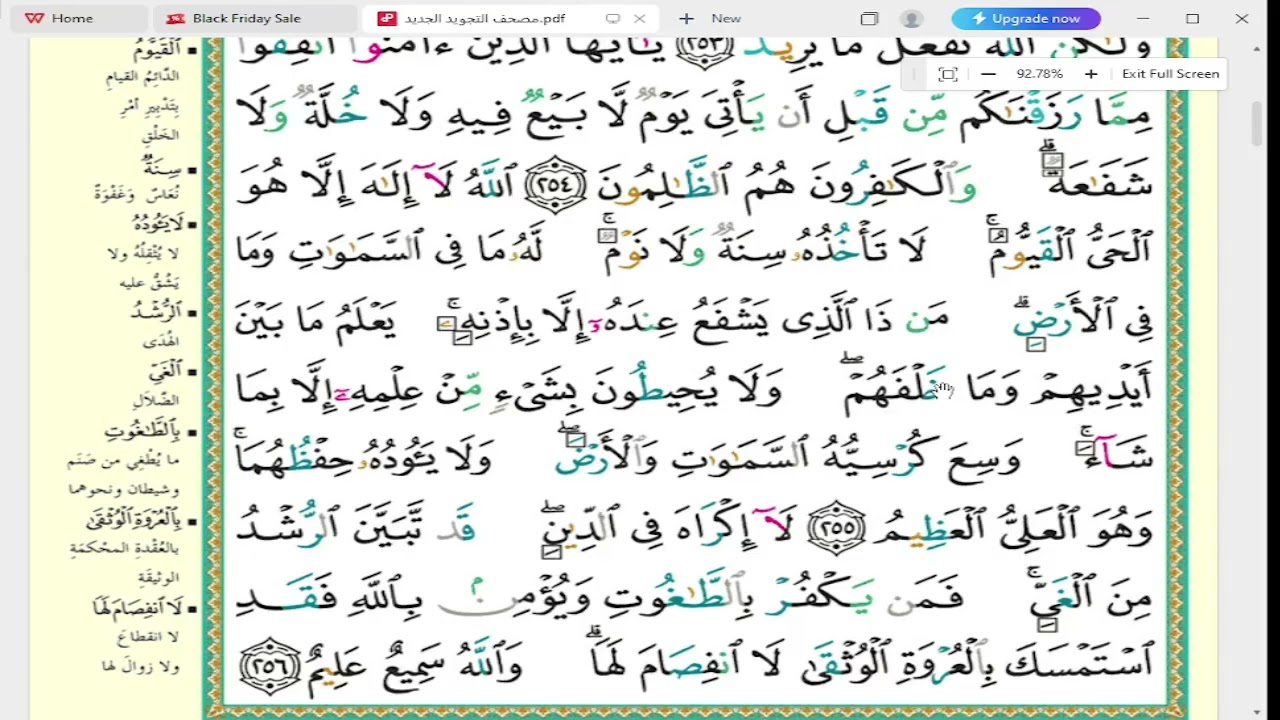 Home
Black Friday Sale
مصحف التجويد الجديد.pdf
New
Upgrade now
92.78%
Exit Full Screen
وَلَٰكِنَّ ٱللَّهَ يَفْعَلُ مَا يُرِيدُ ﴿٢٥٣﴾ يَٰٓأَيُّهَا ٱلَّذِينَ ءَامَنُوٓا۟ أَنفِقُوا۟
مِمَّا رَزَقْنَٰكُم مِّن قَبْلِ أَن يَأْتِىَ يَوْمٌ لَّا بَيْعٌ فِيهِ وَلَا خُلَّةٌ وَلَا
شَفَٰعَةٌ ۗ وَٱلْكَٰفِرُونَ هُمُ ٱلظَّٰلِمُونَ ﴿٢٥٤﴾ ٱللَّهُ لَآ إِلَٰهَ إِلَّا هُوَ
ٱلْحَىُّ ٱلْقَيُّومُ ۚ لَا تَأْخُذُهُۥ سِنَةٌ وَلَا نَوْمٌ ۚ لَّهُۥ مَا فِى ٱلسَّمَٰوَٰتِ وَمَا
فِى ٱلْأَرْضِ ۗ مَن ذَا ٱلَّذِى يَشْفَعُ عِندَهُۥٓ إِلَّا بِإِذْنِهِۦ ۚ يَعْلَمُ مَا بَيْنَ
أَيْدِيهِمْ وَمَا خَلْفَهُمْ ۖ وَلَا يُحِيطُونَ بِشَىْءٍ مِّنْ عِلْمِهِۦٓ إِلَّا بِمَا
شَآءَ ۚ وَسِعَ كُرْسِيُّهُ ٱلسَّمَٰوَٰتِ وَٱلْأَرْضَ ۖ وَلَا يَـُٔودُهُۥ حِفْظُهُمَا ۚ
وَهُوَ ٱلْعَلِىُّ ٱلْعَظِيمُ ﴿٢٥٥﴾ لَآ إِكْرَاهَ فِى ٱلدِّينِ ۖ قَد تَّبَيَّنَ ٱلرُّشْدُ
مِنَ ٱلْغَىِّ ۚ فَمَن يَكْفُرْ بِٱلطَّٰغُوتِ وَيُؤْمِنۢ بِٱللَّهِ فَقَدِ
ٱسْتَمْسَكَ بِٱلْعُرْوَةِ ٱلْوُثْقَىٰ لَا ٱنفِصَامَ لَهَا ۗ وَٱللَّهُ سَمِيعٌ عَلِيمٌ ﴿٢٥٦﴾
ٱلْقَيُّومُ
الدَّائِمُ القيامِ
بِتَدْبِيرِ أَمْرِ
الخَلْقِ
سِنَةٌ
نُعَاسٌ وَغَفْوَةٌ
لَا يَـُٔودُهُ
لا يُثْقِلُهُ ولا
يَشُقُّ عليه
ٱلرُّشْدُ
الهُدَى
ٱلْغَىِّ
الضَّلَالِ
بِٱلطَّٰغُوتِ
ما يُطْغِي من صَنَم
وشيطان ونحوهما
بِٱلْعُرْوَةِ ٱلْوُثْقَىٰ
بالعُقْدةِ المحْكَمَةِ
الوثيقَةِ
لَا ٱنفِصَامَ لَهَا
لا انقطاعَ
ولا زوالَ لها